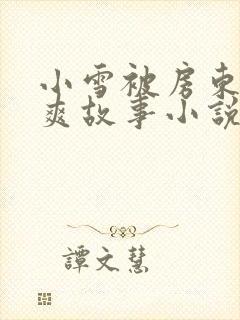 小雪被房东
爽故事小説
譚文慧